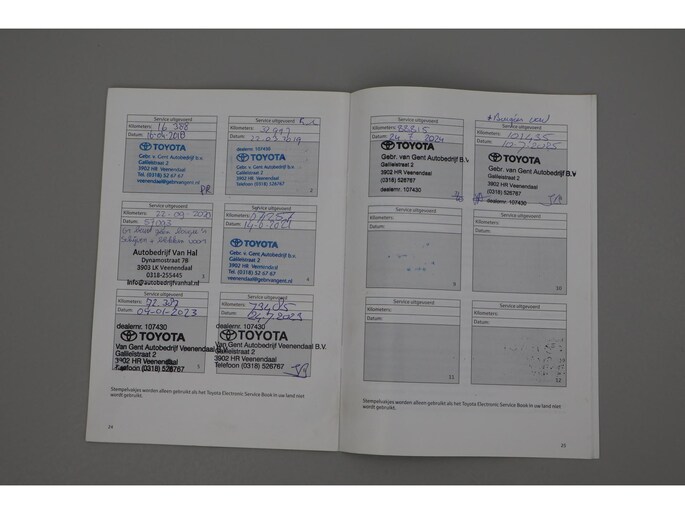 Service uitgevoerd
Kilometers: 16 388
Datum: 16-04-2018
TOYOTA
Gebr. v. Gent Autobedrijf b.v.
Galileistraat 2
3902 HR Veenendaal
Tel. (0318) 52 67 67
veenendaal@gebrvangent.nl
Service uitgevoerd
Kilometers:
Datum:
dealernr. 107430
TOYOTA
Gebr. v. Gent Autobedrijf b.v.
Galileistraat 2
3902 HR Veenendaal
(0318) 526767
2
Service uitgevoerd
Kilometers: 22-09-2020
Datum:
Autobedrijf Van Hal
Dynamostraat 78
3903 LK Veenendaal
0318-255445
info@autobedrijfvanhal.nl
Service uitgevoerd
Kilometers:
Datum:
TOYOTA
Gebr. v. Gent Autobedrijf b.v.
Galileistraat 2
3902 HR Veenendaal
Tel. (0318) 52 67 67
veenendaal@gebrvangent.nl
Service uitgevoerd
Kilometers:
Datum: 04-01-2023
dealernr. 107430
TOYOTA
Van Gent Autobedrijf Veenendaal B.V.
Galileistraat 2
3902 HR Veenendaal
Telefoon (0318) 526767
5
Service uitgevoerd
Kilometers:
Datum: 24.7.2023
dealernr. 107430
TOYOTA
Van Gent Autobedrijf Veenendaal B.V.
Galileistraat 2
3902 HR Veenendaal
Telefoon (0318) 526767
Stempelvakjes worden alleen gebruikt als het Toyota Electronic Service Book in uw land niet
wordt gebruikt.
24
Service uitgevoerd
Kilometers: 88815
Datum: 24 7 2024
TOYOTA
Gebr. van Gent Autobedrijf B.V.
Galileistraat 2
3902 HR Veenendaal
(0318) 526767
dealernr. 107430
Service uitgevoerd
Kilometers: 101435
Datum: 10-7-2025
TOYOTA
Gebr. van Gent Autobedrijf B.V.
Galileistraat 2
3902 HR Veenendaal
(0318) 526767
dealernr. 107430
Service uitgevoerd
Kilometers:
Datum:
9
Service uitgevoerd
Kilometers:
Datum:
10
Service uitgevoerd
Kilometers:
Datum:
11
Service uitgevoerd
Kilometers:
Datum:
12
Stempelvakjes worden alleen gebruikt als het Toyota Electronic Service Book in uw land niet
wordt gebruikt.
25